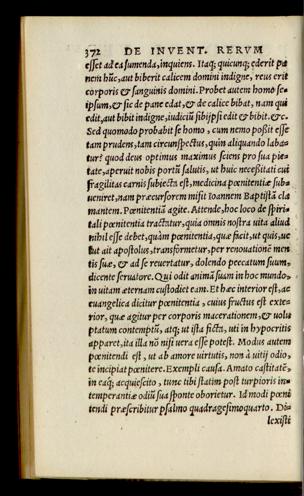 372 DE INVENT. RERVM
esset ad ea sumenda, inquiens. Itaq; quicunq; ederit pa
nem hũc, aut biberit calicem domini indigne, reus erit
corporis & sanguinis domini. Probet autem homo se-
ipsum, & sic de pane edat, & de calice bibat, nam qui
edit, aut bibit indigne, iudiciũ sibijpsi edit & bibit. &c.
Sed quomodo probabit se homo, cum nemo possit esse
tam prudens, tam circunspectus, quin aliquando laba-
tur? quod deus optimus maximus sciens pro sua pie-
tate, aperuit nobis portũ salutis, ut huic necessitati cui
fragilitas carnis subiecta est, medicina pœnitentiæ sub-
ueniret, nam præcursorem misit Ioannem Baptistã cla
mantem. Pœnitentiã agite. Attende, hoc loco de spiri-
tali pœnitentia tractatur, quia omnis nostra uita aliud
nihil esse debet, quàm pœnitentia, quæ facit, ut quis, ue
lut ait apostolus, transformetur, per renouationē men
tis suæ, & ad se reuertatur, dolendo peccatum suum,
dicente seruatore. Qui odit animã suam in hoc mundo,
in uitam æternam custodiet eam. Et hæc interior est, ac
euangelica dicitur pœnitentia, cuius fructus est exte-
rior, quæ agitur per corporis macerationem, & uolu
ptatum contemptũ, atq; ut ista ficta, uti in hypocritis
apparet, ita illa nõ nisi uera esse potest. Modus autem
pœnitendi est, ut ab amore uirtutis, non à uitij odio,
te incipiat pœnitere. Exempli causa. Amato castitatē,
in eaq; acquiescito, tunc tibi statim post turpioris in-
temperantiæ odiũ sua sponte oborietur. Id modi pœni
tendi præscribitur psalmo quadragesimoquarto. Di-
lexisti